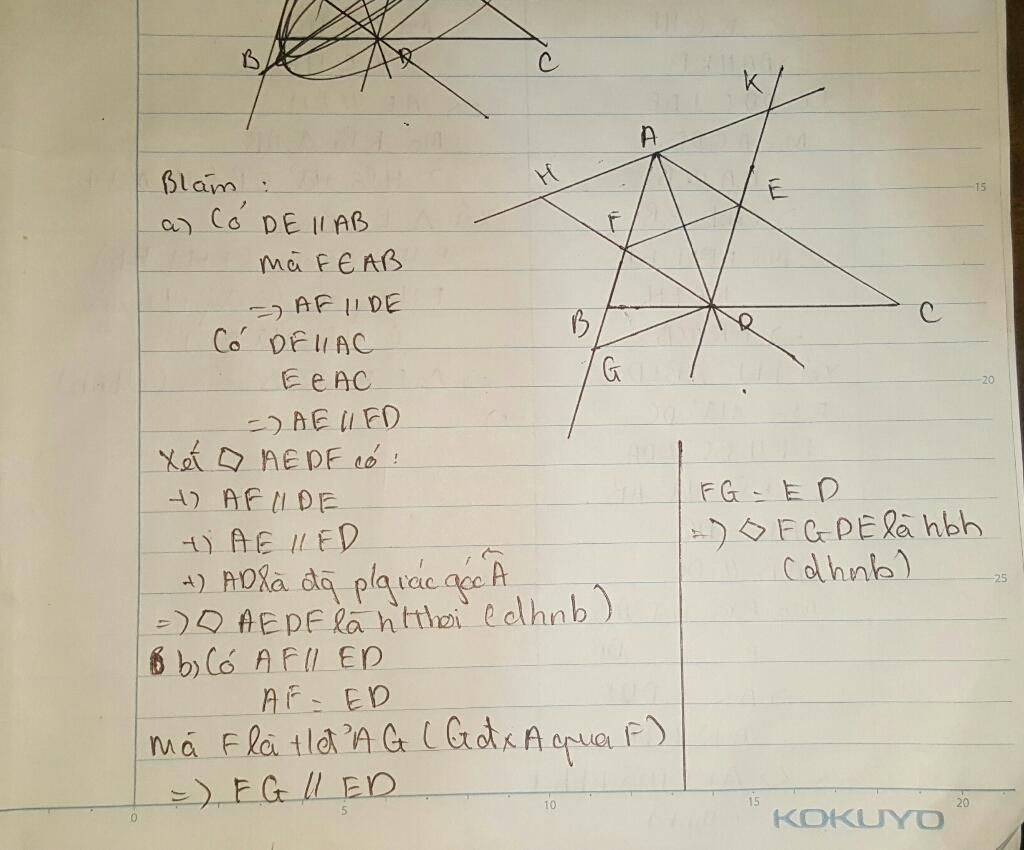 B
D
C
K
A
H
E
F
B
D
C
G
Blàm :
a) Có DE // AB
mà F ∈ AB
=> AF // DE
Có DF // AC
E ∈ AC
=> AE // FD
Xét ◇ AEDF có :
+) AF // DE
+) AE // FD
+) AD là đg p/giác góc Â
=> ◇ AEDF là h'thoi (dhnb)
b) Có AF // ED
AF = ED
mà F là tđ AG (G đx A qua F)
=> FG // ED
FG = ED
=> ◇ FGDE là hbh
(dhnb)
15
20
25
0
5
10
15
20
KOKUYO